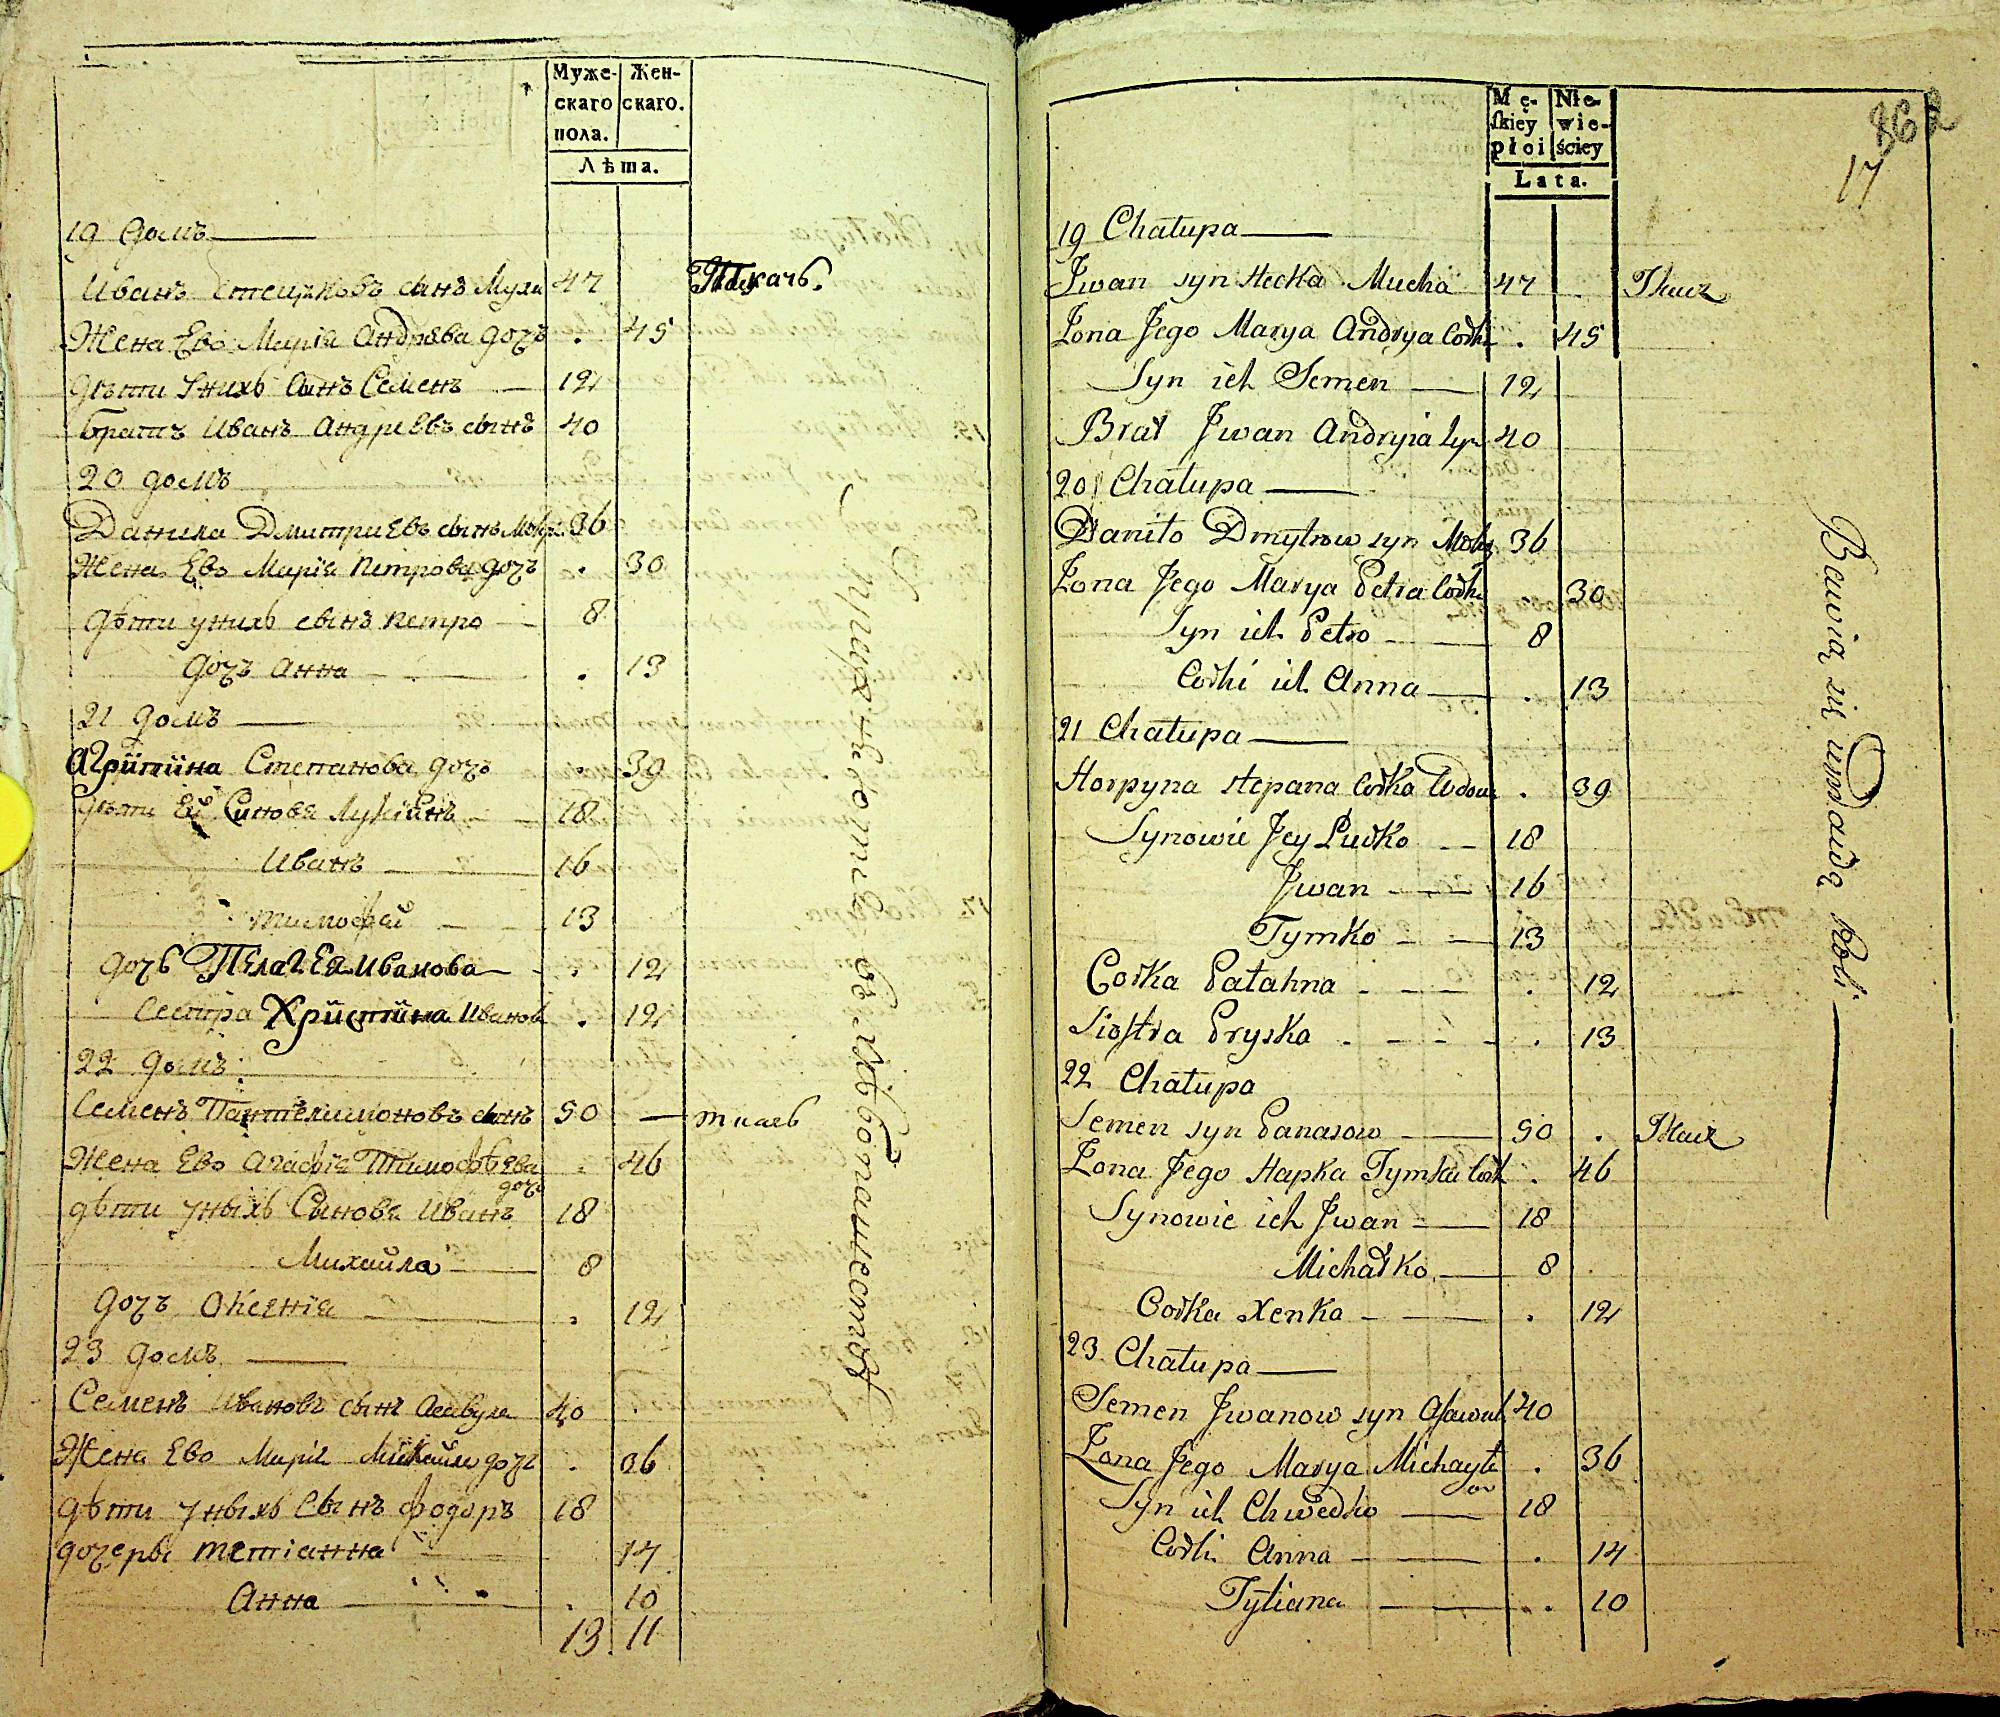 Муже-
скаго
пола.
Жен-
скаго.
Лѣта.
19 домъ
Иванъ Стецковъ сынъ Муха 47 Ткачь.
Жена Ево Марія Андрѣва дочъ . 45
дѣти Унихъ Сынъ Семенъ 12
Братъ Иванъ Андрієвъ сынъ 40
20 домъ
Данила Дмитриевъ сынъ 36
Жена Ево Марія Петрова дочъ . 30
дѣти унихъ сынъ Петро 8
дочъ Анна . 13
21 домъ
Агрипина Степанова дочъ . 39
дѣти Ей Синовя Лукіянъ 18
Иванъ 16
тимофей 13
дочь Пелагея Иванова . 12
Сестра Христина Иванов . 12
22 домъ
Семенъ Пантелимоновъ сынъ 50 ткачь
Жена Ево Агафія Тимофѣева дочъ . 46
дѣти Уныхъ Сыновя Иванъ 18
Михайла 8
дочъ Оксенія . 12
23 домъ
Семенъ Ивановъ сынъ Асавула 40
Жена Ево Марія Михайла дочъ . 36
дѣти Уныхъ Сынъ Фодоръ 18
дочеры Тетіанна 14
Анна . 10
13 11
Упражняются въ хлѣбопашестве
Mę-
skiey
płci
Nie-
wie-
ściey
Lata.
862
17
19 Chałupa
Jwan syn stecka Mucha 47 . Tkacz
Żona Jego Marya Andryja Corka . 45
Syn ich Semen 12
Brat Jwan Andryia syn 40
20 Chałupa
Daniło Dmytrow syn 36
Żona Jego Marya Petra Corka 30
Syn ich Petro 8
Corki ich Anna . 13
21 Chałupa
Horpyna stepana Corka Wdowa . 39
Synowie Jey Lucko 18
Jwan 16
Tymko 13
Corka Pałahna . 12
Siostra Pryska . 13
22 Chałupa
Semen syn Panasow 50 . Tkacz
Żona Jego Hapka Tymka Cork . 46
Synowie ich Jwan 18
Michałko 8
Corka Xenka . 12
23 Chałupa
Semen Jwanow syn Asawuł 40
Żona Jego Marya Michayła cor . 36
Syn ich Chwedko 18
Corki Anna . 14
Tytiana . 10
Bawią się uprawą Roli